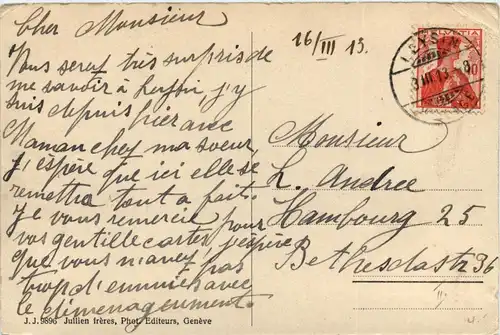 Cher Monsieur
Vous serez très surpris de
me savoir à Leysin, j'y
suis depuis hier avec
Maman chez ma soeur,
j'espère que ici elle se
remettra tout à fait.
Je vous remercie pour
vos gentille cartes, j'espère
que vous n'avez pas
trop d'ennuies avec
le déménagement.
16/III 13.
HELVETIA
10
LEYSIN
Monsieur
L. Andree
Hambourg 25
Bethesdastr 36
III
J.J. 9896 Jullien frères, Phot. Editeurs, Genève